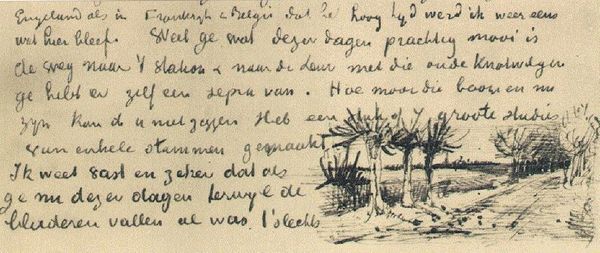 Engeland als in Frankrijk & Belgie dat 't hoog tijd werd ik weer eens
wat hier bleef. Weet ge wat dezer dagen prachtig mooi is
de weg naar 't station & naar de Leur met die oude knotwilgen
ge hebt er zelf een sepia van. Hoe mooi die boomen nu
zijn kan ik U niet zeggen Heb een groote studies
van enkele stammen gemaakt
Ik weet vast en zeker dat als
ge nu dezer dagen terwijl de
bladeren vallen al was 't slechts